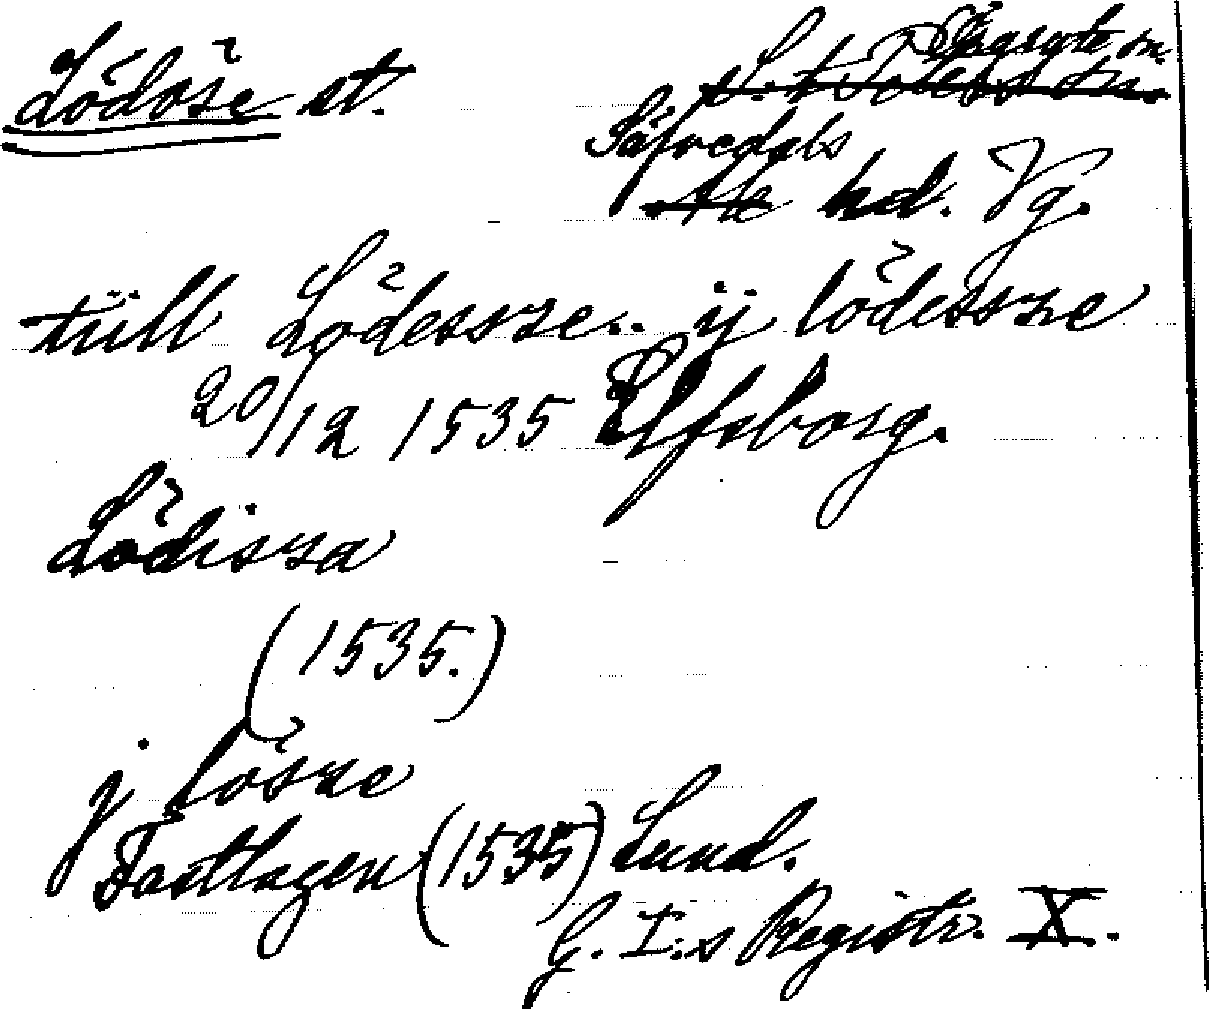 Lödöse st.
S.t Peders sn.
Säfvedals
Ale hd. Vg.
tüll Lödessze.. ij lödessze
20/12 1535 Elfsborg.
Lödisza
(1535.)
j lösze
Fastlagen (1535) Lund.
G. I:s Registr. X.